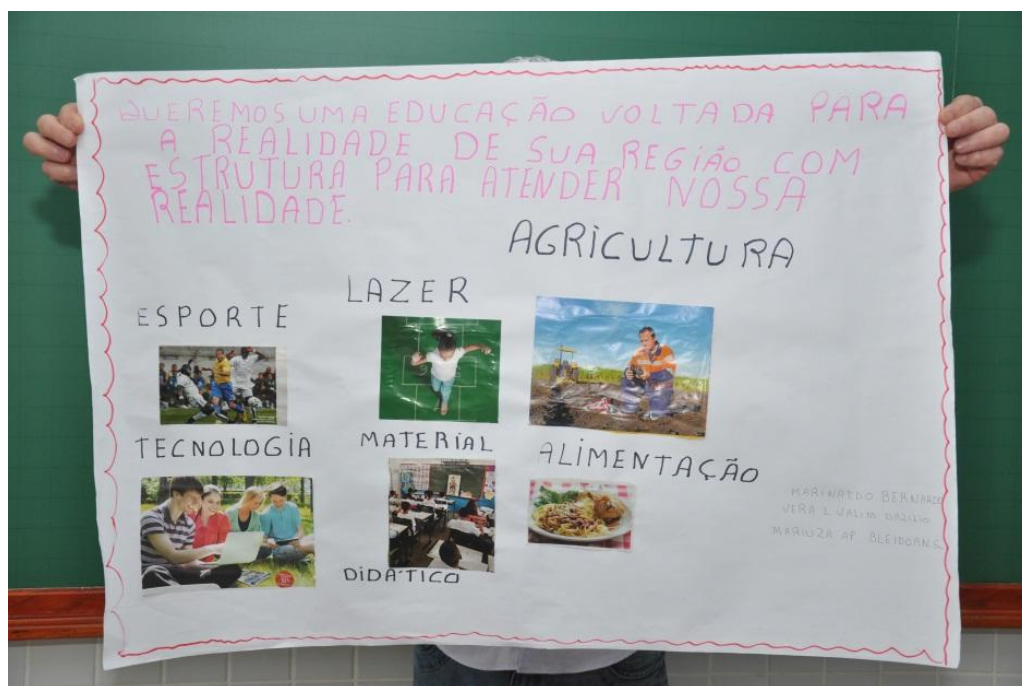 QUEREMOS UMA EDUCAÇÃO VOLTADA PARA
A REALIDADE DE SUA REGIÃO COM
ESTRUTURA PARA ATENDER NOSSA
REALIDADE.
AGRICULTURA
LAZER
ESPORTE
TECNOLOGIA
MATERIAL
ALIMENTAÇÃO
DIDÁTICO
BERNARDO
VERA L VALIM
MARIUZA AP.